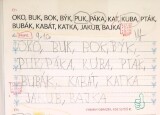 OKO, BUK, BOK, BÝK, PUK, PÁKA, KAT, KUBA, PTÁK,
BUBÁK, KABÁT, KAPKA, JAKUB, BAJKA
OKO, BUK, BOK, BÝK,
PUK, PÁKA, KAT, KUBA, PTÁK
BUBÁK, KABÁT, KAPKA
JAKUB, BAJKA